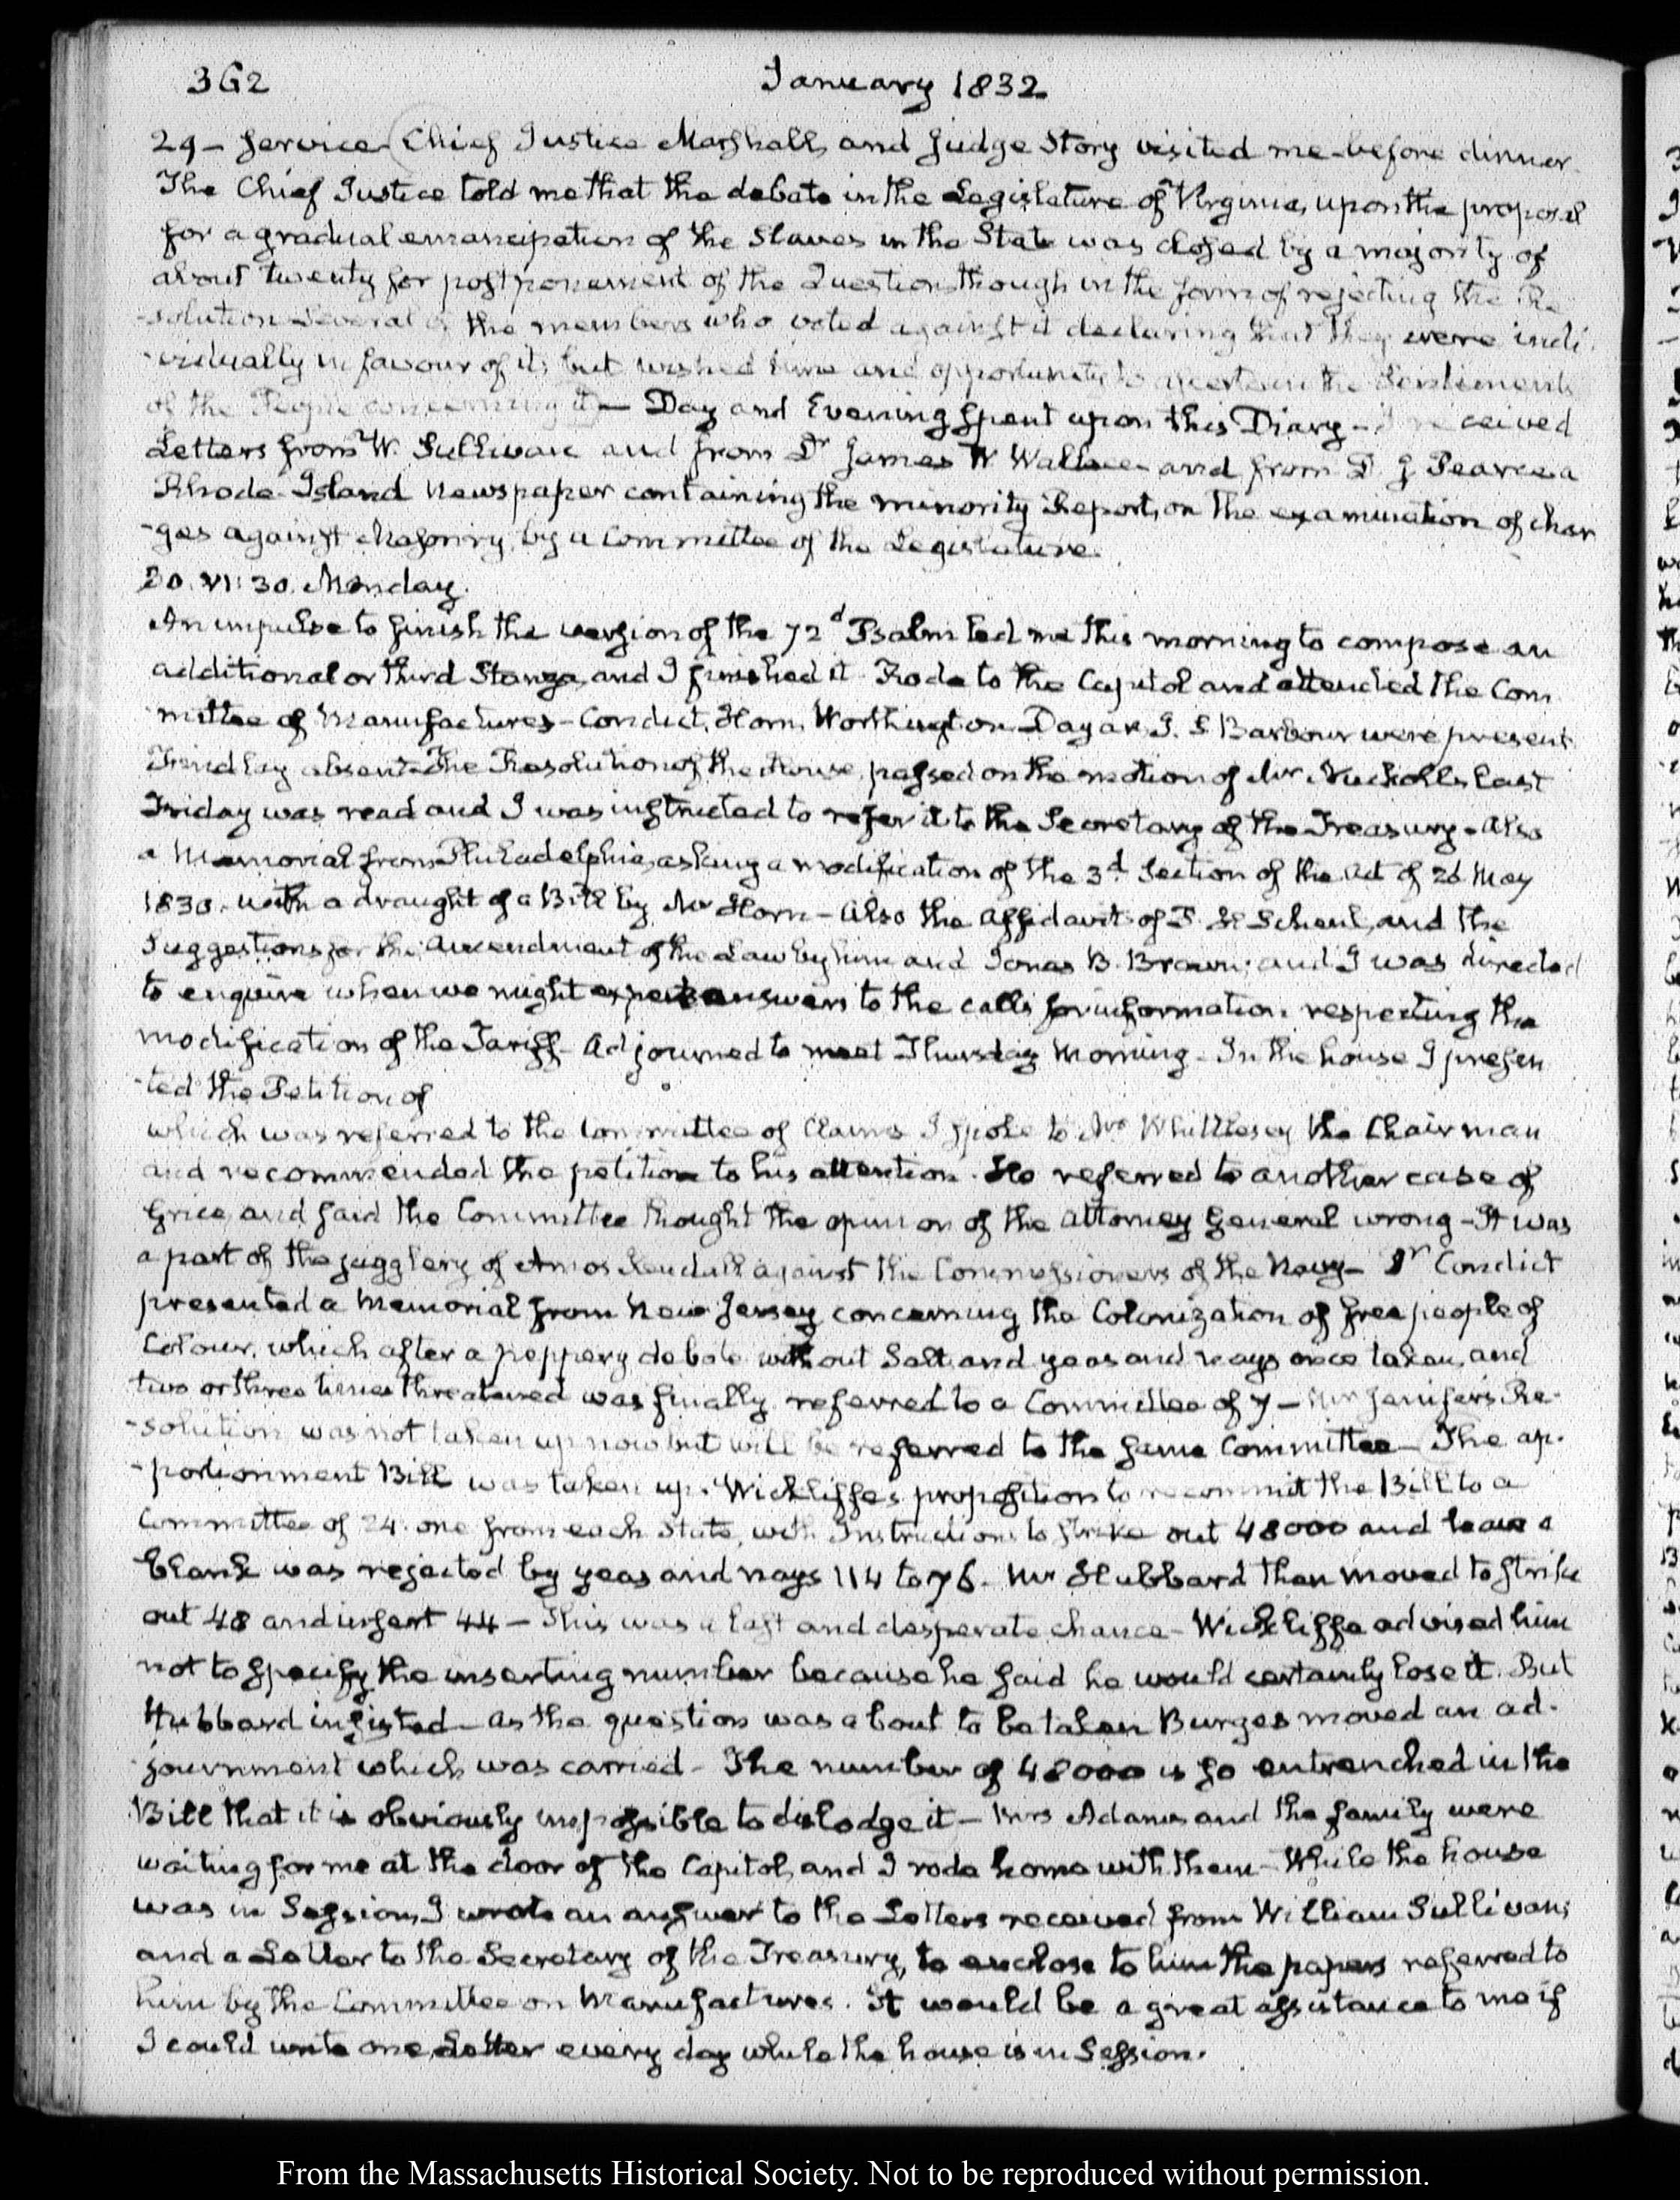 362 January 1832
29 – service – Chief Justice Marshall, and Judge Story visited me before dinner.
The Chief Justice told me that the debate in the Legislature of Virginia, upon the proposal
for a gradual emancipation of the Slaves in the State was closed by a majority of
about twenty for postponement of the Question though in the form of rejecting the Re
-solution several of the members who voted against it declaring that they were indi
-vidually in favour of it; but wished time and opportunity to ascertain the Sentiments
of the People concerning it — Day and Evening spent upon this Diary – I received
Letters from W. Sullivan and from Dr James W Wallace and from D. J Pearce a
Rhode-Island Newspaper containing the minority Report, on the examination of char
-ges against Masonry, by a Committee of the Legislature.
30. VI: 30. Monday.
An impulse to finish the version of the 72d Psalm led me this morning to compose an
additional or third Stanza, and I finished it – Rode to the Capitol and attended the Com
mittee of Manufactures – Condict, Horn, Worthington Dayan, J. S Barbour were present
Findlay absent – The Resolution of the House, passed on the motion of Mr Nuckolls last
Friday was read and I was instructed to refer it to the Secretary of the Treasury – Also
a Memorial from Philadelphia, asking a modification of the 3d. Section of the Act of 28 May
1830. with a draught of a Bill by Mr Horn – Also the Affidavit of F. and the
Suggestions for the amendment of the Law by him and Jonas B. Brown; and I was directed
to enquire when we might expect answers to the calls for information respecting the
modification of the Tariff – Adjourned to meet Thursday Morning – In the house I presen
-ted the Petition of
which was referred to the Committee of Claims I spoke to Mr Whittlesey the Chairman
and recommended the petition to his attention. He referred to another case of
Grice, and said the Committee thought the opinion of the Attorney General wrong – It was
a part of the jugglery of Amos Kendall against the Commissioners of the Navy – Dr Condict
presented a Memorial from New Jersey concerning the Colonization of free people of
Colour, which after a peppery debate without Salt, and yeas and nays once taken, and
two or three times threatened was finally referred to a Committee of 7 – Mr Jenifer's Re-
-solution was not taken up now but will be referred to the same Committee – The ap-
-portionment Bill was taken up. Wickliffe's proposition to recommit the Bill to a
Committee of 24. one from each State, with Instructions to strike out 48000 and leave a
blank was rejected by yeas and nays 114 to 76 – Mr Hubbard then moved to strike
out 48 and insert 44 – This was a last and desperate chance – Wickliffe advised him
not to specify the inserting number because he said he would certainly lose it. But
Hubbard insisted – As the question was about to be taken Burges moved an ad-
-journment which was carried – The number of 48000 is so entrenched in the
Bill that it is obviously impossible to dislodge it – Mrs Adams and the family were
waiting for me at the door of the Capitol, and I rode home with them – While the house
was in Session, I wrote an answer to the Letters received from William Sullivan;
and a Letter to the Secretary of the Treasury, to enclose to him the papers referred to
him by the Committee on Manufactures. It would be a great assistance to me if
I could write one Letter every day while the house is in Session.
From the Massachusetts Historical Society. Not to be reproduced without permission.